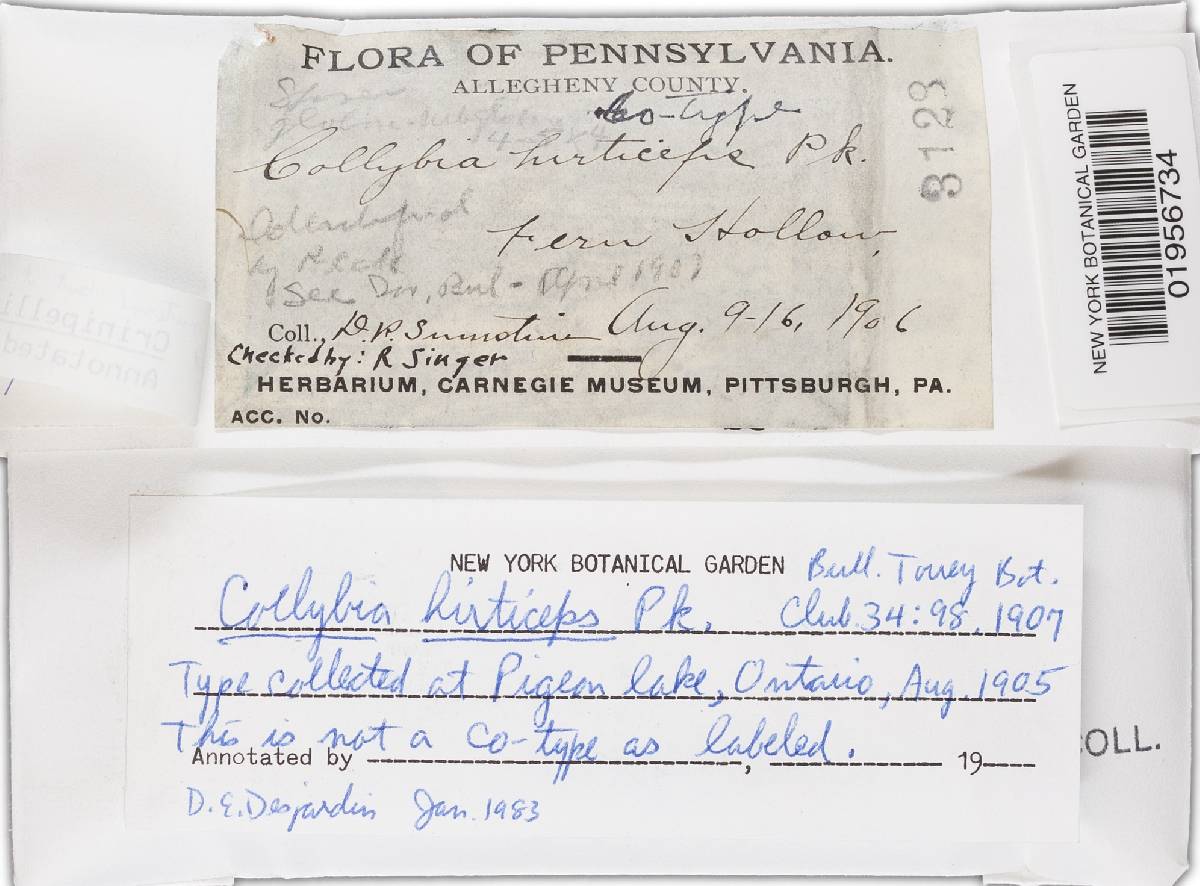 FLORA OF PENNSYLVANIA.
ALLEGHENY COUNTY.
Co-type
Collybia hirticeps Pk.
Fern Hollow,
by Peck
See Tor. Bul - April 1907
Coll., D.R. Sumstine Aug. 9-16, 1906
Checked by: R Singer
HERBARIUM, CARNEGIE MUSEUM, PITTSBURGH, PA.
ACC. No.
3128
NEW YORK BOTANICAL GARDEN
01956734
Crinipelli
Annotated
NEW YORK BOTANICAL GARDEN Bull. Torrey Bot.
Collybia hirticeps Pk. Club. 34:98. 1907
Type collected at Pigeon lake, Ontario, Aug. 1905
This is not a Co-type as labeled.
Annotated by , 19
D.E. Desjardin Jan. 1983
OLL.